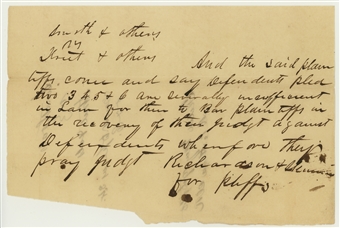 & others
vs
& others And the said plain
tiffs come and say Defendents pleas
two 3 4 5 & 6 are severally insufficient
in Law for them to Bar plaintiffs in
the recovery of their Judgt against
Defendents wherefore they
pray Judgt Richardson &
for plffs